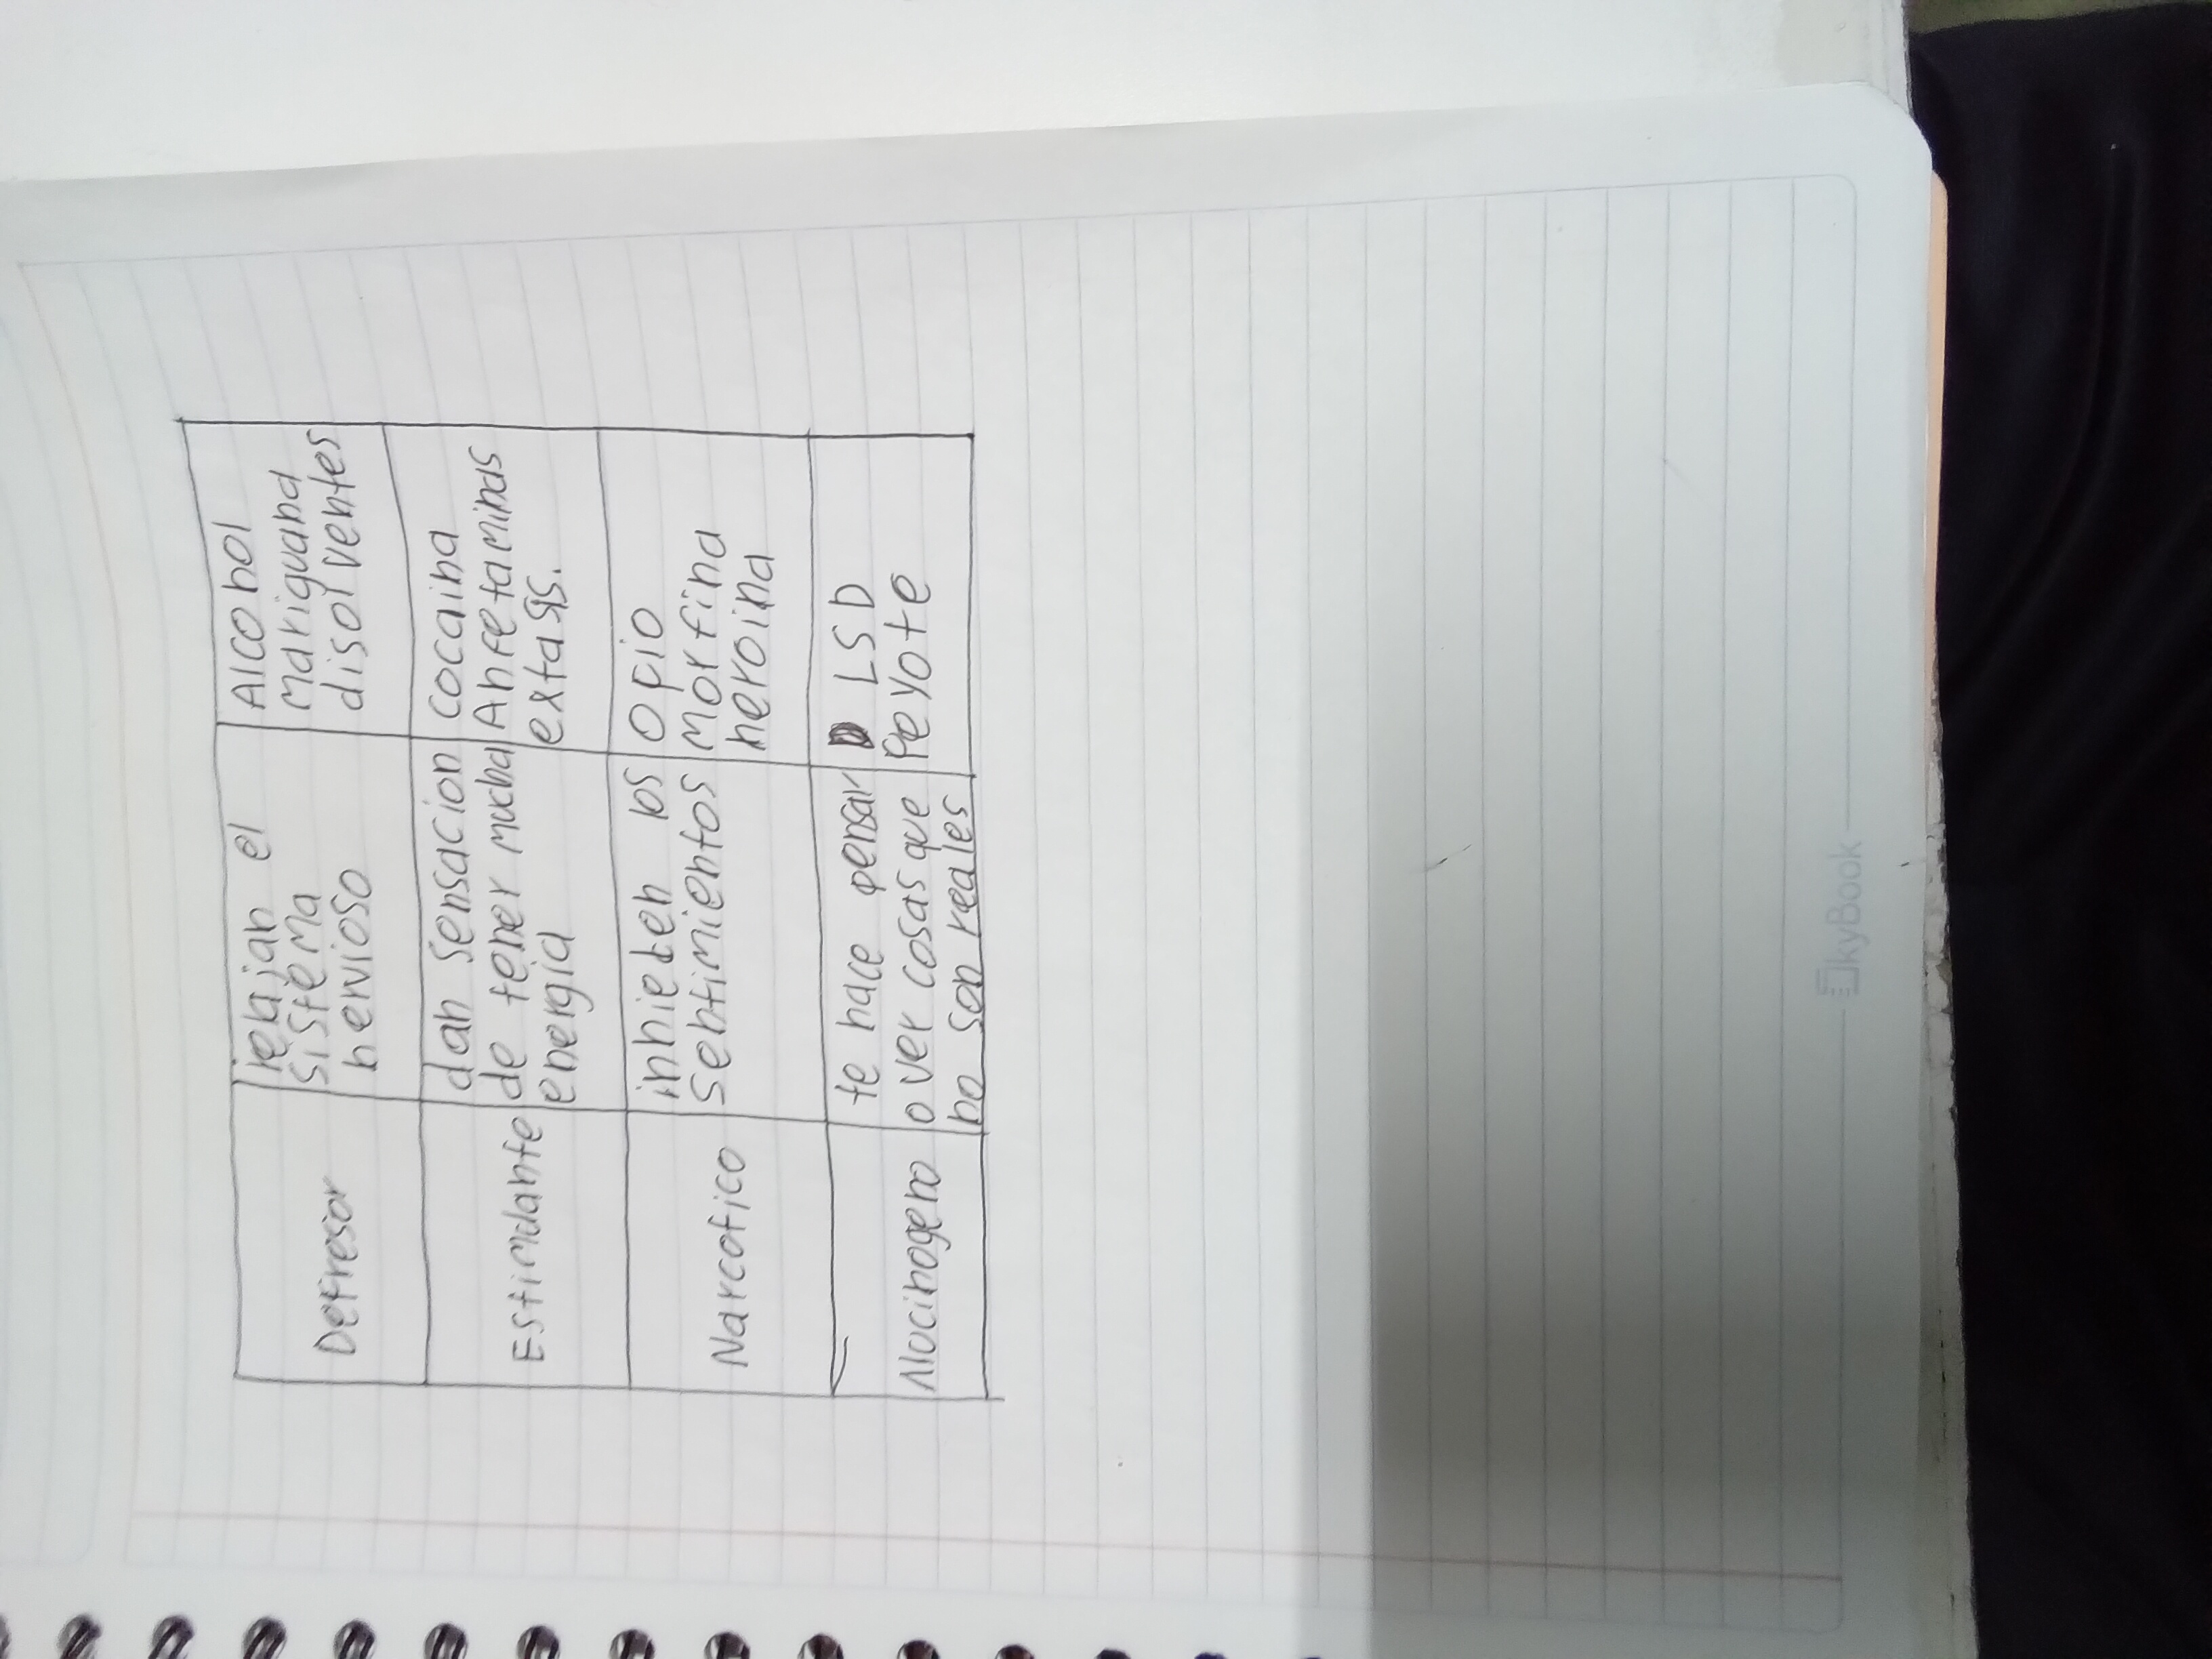 Depresor
relajan el
sistema
nervioso
Alcohol
Mariguana
disolventes
Estimulante
dan sensacion
de tener mucha
energia
cocaina
Anfetaminas
extasis.
Narcotico
inhiben los
sentimientos
opio
Morfina
heroina
Alocinogeno
te hace pensar
o ver cosas que
no son reales
LSD
Peyote
kyBook